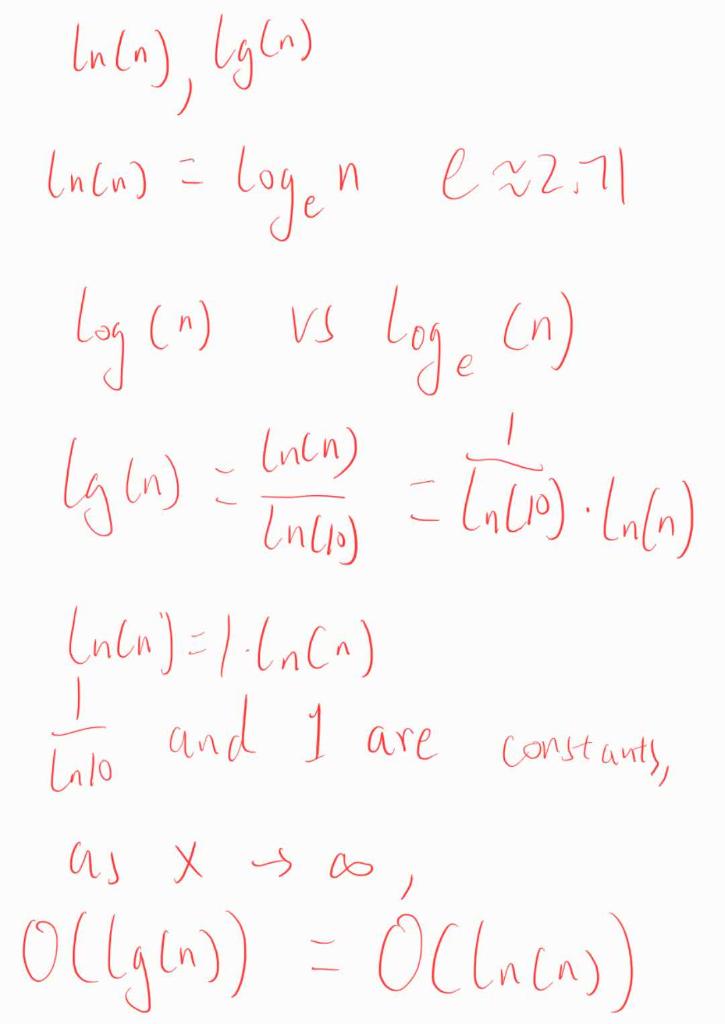 ln(n), lg(n)
ln(n) = log_e n e ≈ 2.71
log(n) vs log_e (n)
lg(n) = ln(n)/ln(10) = 1/ln(10) · ln(n)
ln(n) = 1 · ln(n)
1/ln10 and 1 are constants,
as x → ∞,
O(lg(n)) = O(ln(n))